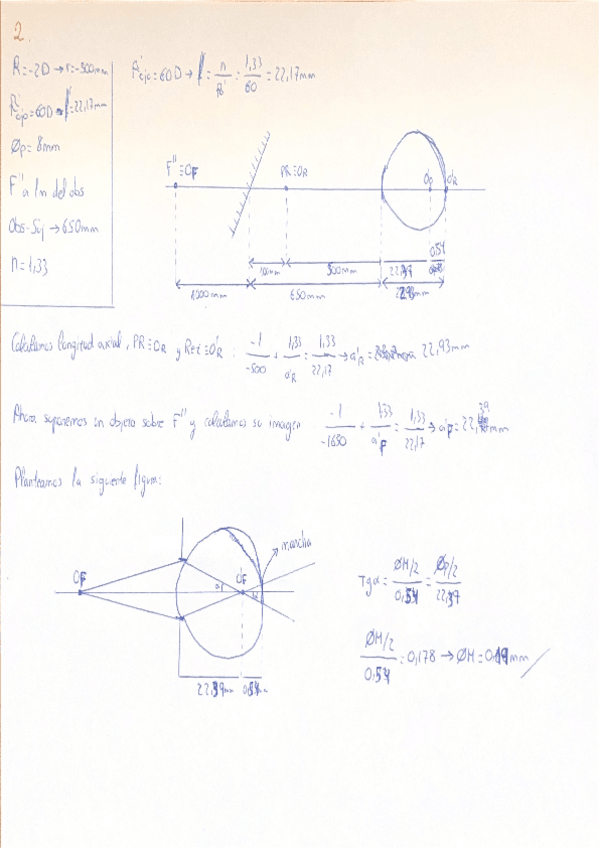 2.
R=-2D → r=-500mm
P'ojo=60D → f'=22,17mm
Øp=8mm
F'' a 1m del obs
Obs-Suj → 650mm
n=1,33
P'ojo=60D → f' = n/P' = 1,33/60 = 22,17mm
F''≡OF PR≡OR O'F O'R
500mm 22,39 0,54
1000mm 650mm 22,93mm
Calculamos longitud axial, PR≡OR y Ret≡O'R: -1/-500 + 1,33/a'R = 1,33/22,17 → a'R = 22,93mm
Ahora suponemos un objeto sobre F'' y calculamos su imagen -1/-1650 + 1,33/a'F = 1,33/22,17 → a'F = 22,39mm
Planteamos la siguiente figura:
mancha
OF α O'F α
22,39mm 0,54mm
Tgα = ØM/2/0,54 = Øp/2/22,39
ØM/2/0,54 = 0,178 → ØM = 0,19mm